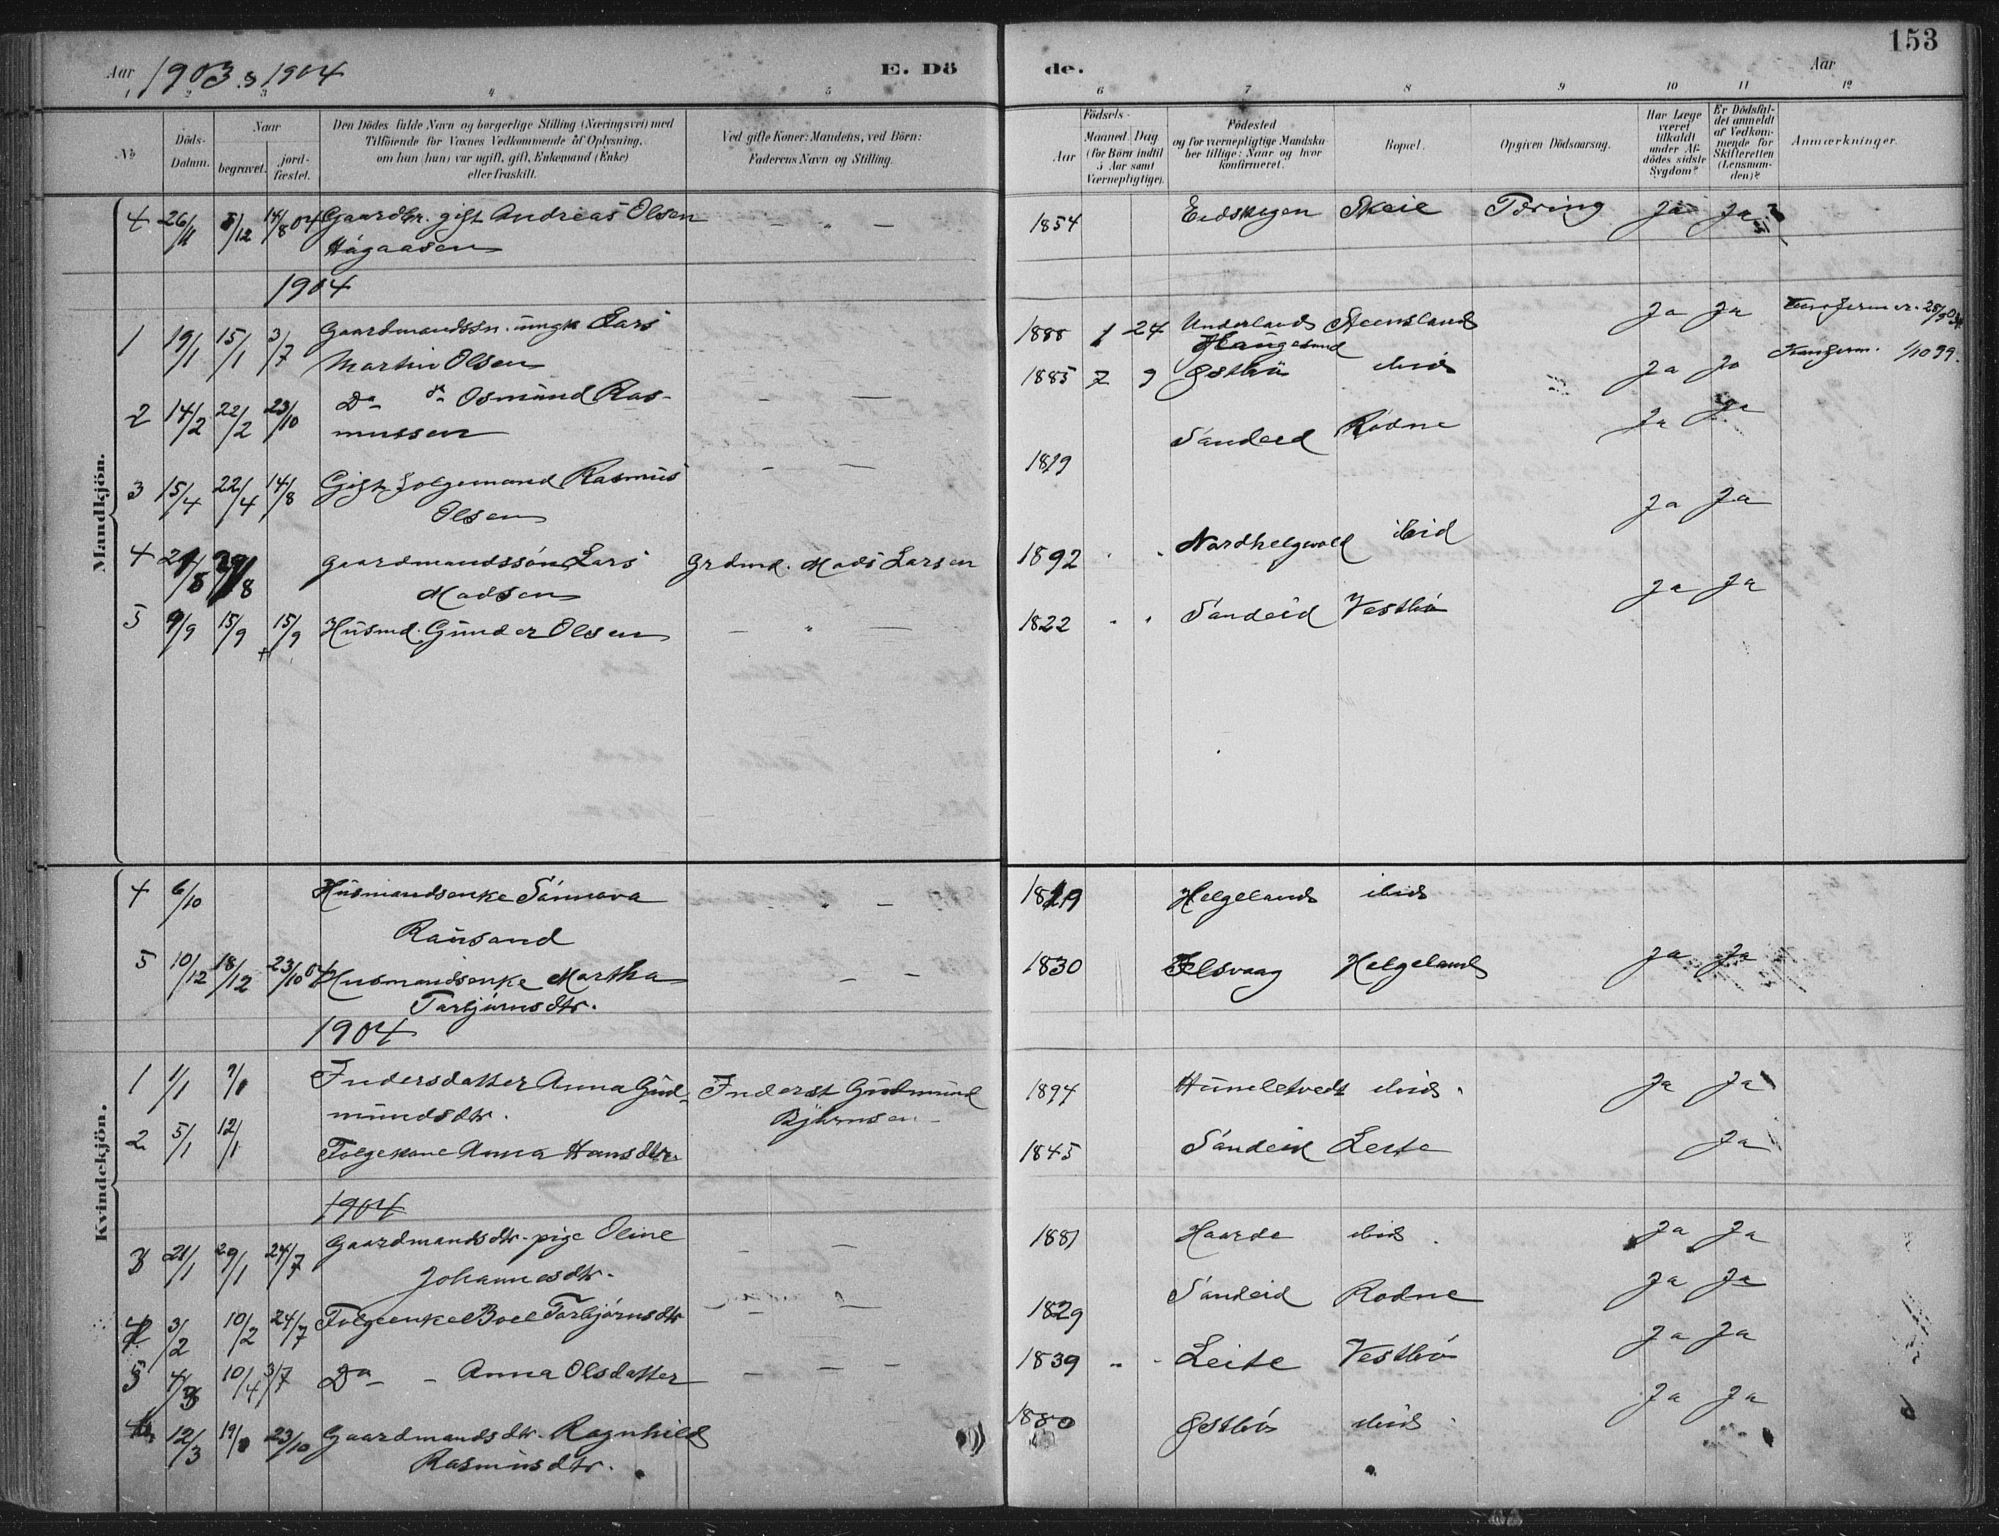 Aar 1903 & 1904 E. Dö
de. Aar 153
1 2 3 4 5 6 7 8 9 10 11 12
No
Döds-
Datum.
Naar
begravet.
jord-
fæstet.
Den Dödes fulde Navn og borgerlige Stilling (Næringsvei) med
Tilföiende for Voxnes Vedkommende af Oplysning,
om han (hun) var ugift, gift, Enkemand (Enke)
eller fraskilt.
Ved gifte Koner: Mandens, ved Börn:
Faderens Navn og Stilling.
Födsels-
Aar
Maaned Dag
(for Börn indtil
5 Aar samt
Værnepligtige).
Födested
og for værnepligtige Mandska-
ber tillige: Naar og hvor
konfirmeret.
Bopæl.
Opgiven Dödsaarsag.
Har Læge
været
tilkaldt
under Af-
dödes sidste
Sygdom?
Er Dödsfal-
det anmeldt
af Vedkom-
mende for
Skifteretten
(Lensman-
den)?
Anmærkninger.
Mandkjön.
4 26/11 5/12 14/8 04 Gaardbr. gift Andreas Olsen — " — 1854 Eidskogen Skeie Tæring Ja Ja
Hågaasen
1904
1 19/1 15/1 3/7 Gaardmandssn. ungk Lars 1888 1 24 Underlands Steensland Ja Ja
Martin Olsen Haugesund
2 14/2 22/2 23/10 Da do Osmund Ras- — — 1885 7 9 Østbø ibid Ja Ja 1/10 99.
mussen
3 15/4 22/4 14/8 Gift Folgemand Rasmus — — 1819 Sandeid Rødne Ja Ja
Olsen
4 29/8 Gaardmandssøn Lars Grdmd. Mads Larsen 1892 " " Nordhelgevold ibid Ja Ja
Madsen
5 9/9 15/9 15/9 Husmd. Gunder Olsen — " — 1822 " " Sandeid Vestbø Ja Ja
Kvindekjön.
4 6/10 Husmandsenke Sønnava — " — 1819 Helgeland ibid
Rausand
5 10/12 18/12 23/10 04 Husmandsenke Martha — — 1830 Ilsvaag Helgeland Ja Ja
Torbjørnsdtr.
1904
1 1/1 Indersdatter Anna Gud- Inderst Gudmund 1894 Humletvedt ibid. Ja Ja
mundsdtr. Bjørnsen
2 5/1 12/1 Folgekone Anna Hansdtr. 1845 Sandeid Leite Ja
1904
3 21/1 29/1 24/7 Gaardmandsdtr. pige Oline — — 1881 Haarda ibid. Ja Ja
Johannesdtr.
4 3/2 10/2 24/7 Folgeenke Boel Torbjørnsdtr — — 1829 Sandeid Rødne Ja Ja
5 4/3 10/4 3/7 Da " Anna Olsdatter — — — 1839 " " Leite Vestbø Ja Ja
12/3 23/10 Gaardmandsdtr. Ragnhild 1880 Østbø ibid Ja Ja
Rasmusdtr.